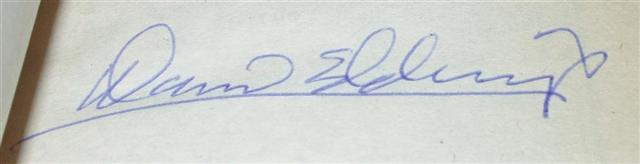 David Eddings